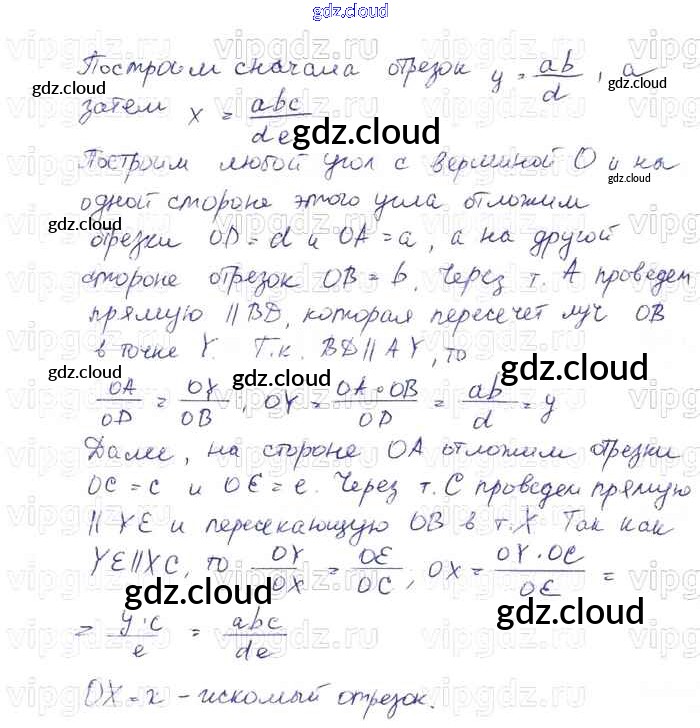 gdz.cloud
Построим сначала отрезок y = ab/d, а
затем x = abc/de
Построим любой угол с вершиной O и на
одной стороне этого угла отложим
отрезки OD = d и OA = a, а на другой
стороне отрезок OB = b. Через т. A проведем
прямую || BD, которая пересечет луч OB
в точке Y. Т.к. BD || AY, то
OA/OD = OY/OB, OY = OA·OB/OD = ab/d = y
Далее, на стороне OA отложим отрезки
OC = c и OE = e. Через т. C проведем прямую
|| YE и пересекающую OB в т. X. Так как
YE || XC, то OY/OX = OE/OC, OX = OY·OC/OE =
= y·c/e = abc/de
OX = x - искомый отрезок.